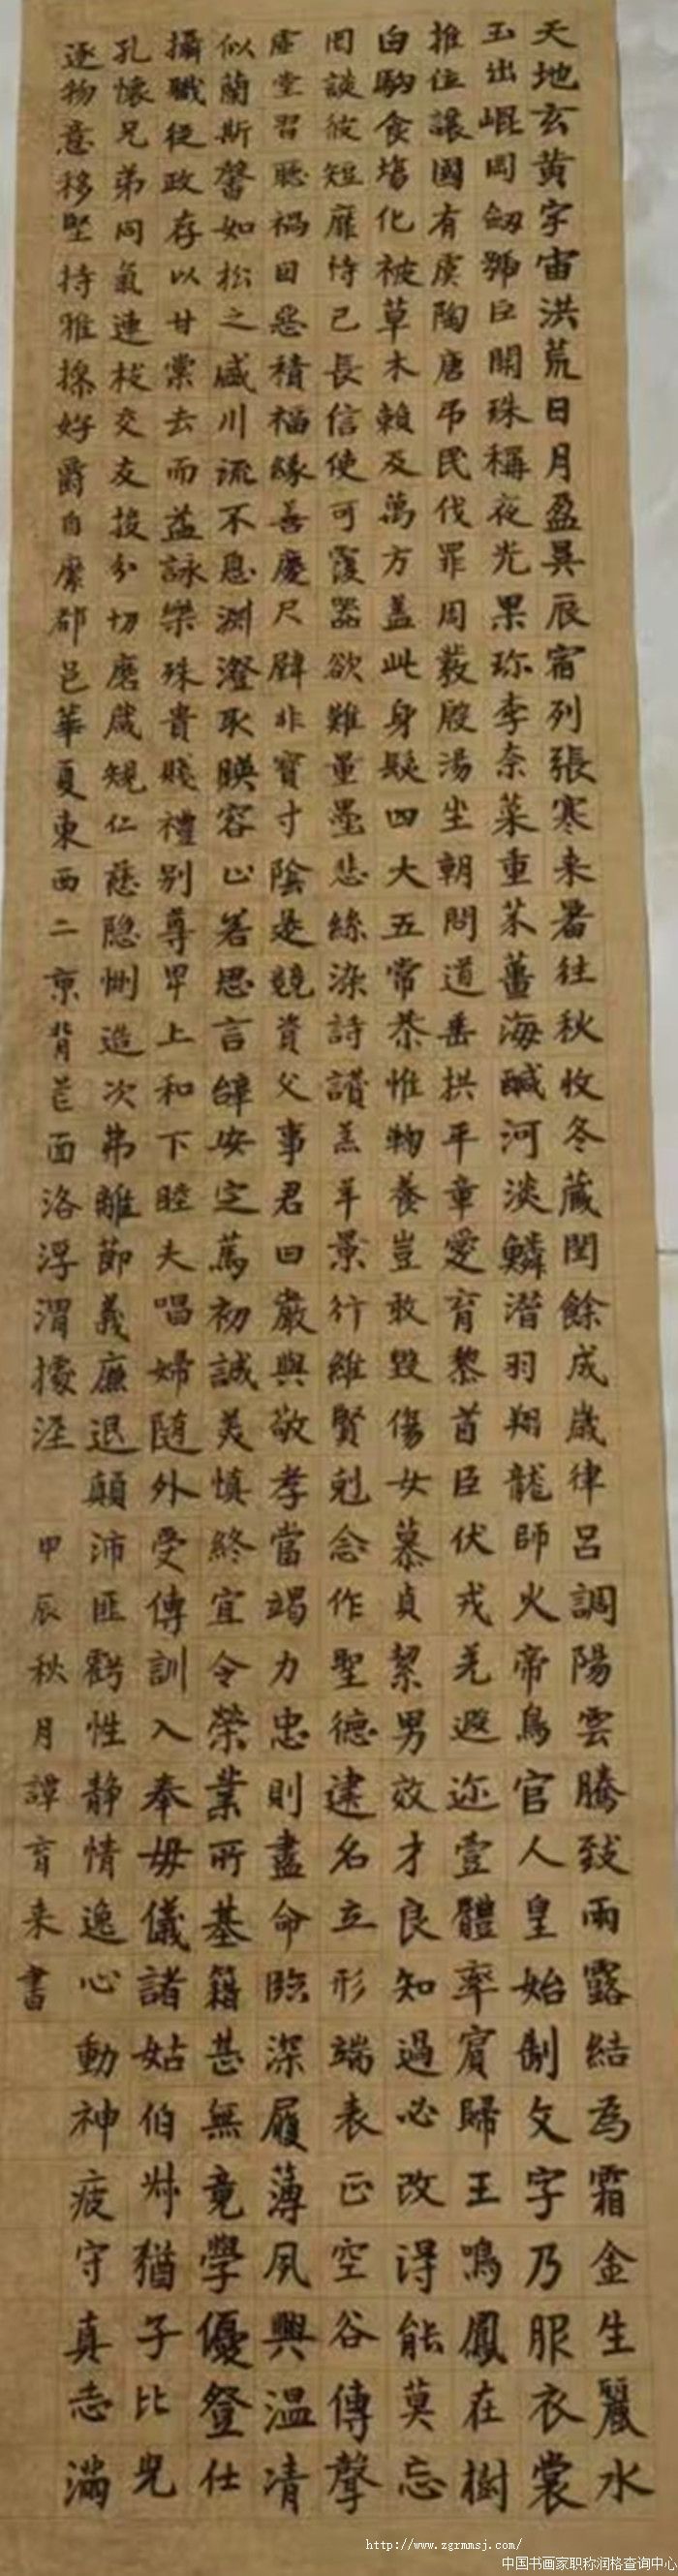 天地玄黃宇宙洪荒日月盈昃辰宿列張寒来暑往秋收冬藏閏餘成歲律呂調陽雲騰致雨露結為霜金生麗水
玉出崐岡劒號巨闕珠稱夜光果珎李柰菜重芥薑海醎河淡鱗潛羽翔龍師火帝鳥官人皇始制文字乃服衣裳
推位讓國有虞陶唐吊民伐罪周發殷湯坐朝問道垂拱平章愛育黎首臣伏戎羌遐迩壹體率賓歸王鳴鳳在樹
白駒食場化被草木賴及萬方盖此身髮四大五常恭惟鞠養豈敢毀傷女慕貞絜男效才良知過必改得能莫忘
罔談彼短靡恃己長信使可覆器欲難量墨悲絲染詩讃羔羊景行維賢剋念作聖德建名立形端表正空谷傳聲
虛堂習聽禍因惡積福緣善慶尺璧非寶寸陰是競資父事君曰嚴與敬孝當竭力忠則盡命臨深履薄夙興温凊
似蘭斯馨如松之盛川流不息渊澄取暎容止若思言辭安定篤初誠美慎終宜令榮業所基籍甚無竟學優登仕
攝職從政存以甘棠去而益詠樂殊貴賤禮別尊卑上和下睦夫唱婦随外受傅訓入奉母儀諸姑伯叔猶子比兒
孔懷兄弟同氣連枝交友投分切磨箴規仁慈隐惻造次弗離節義廉退顛沛匪虧性静情逸心動神疲守真志滿
逐物意移堅持雅操好爵自縻都邑華夏東西二京背芒面洛浮渭據涇
甲辰秋月譚育来書
http://www.zgrmmsj.com/
中国书画家职称润格查询中心